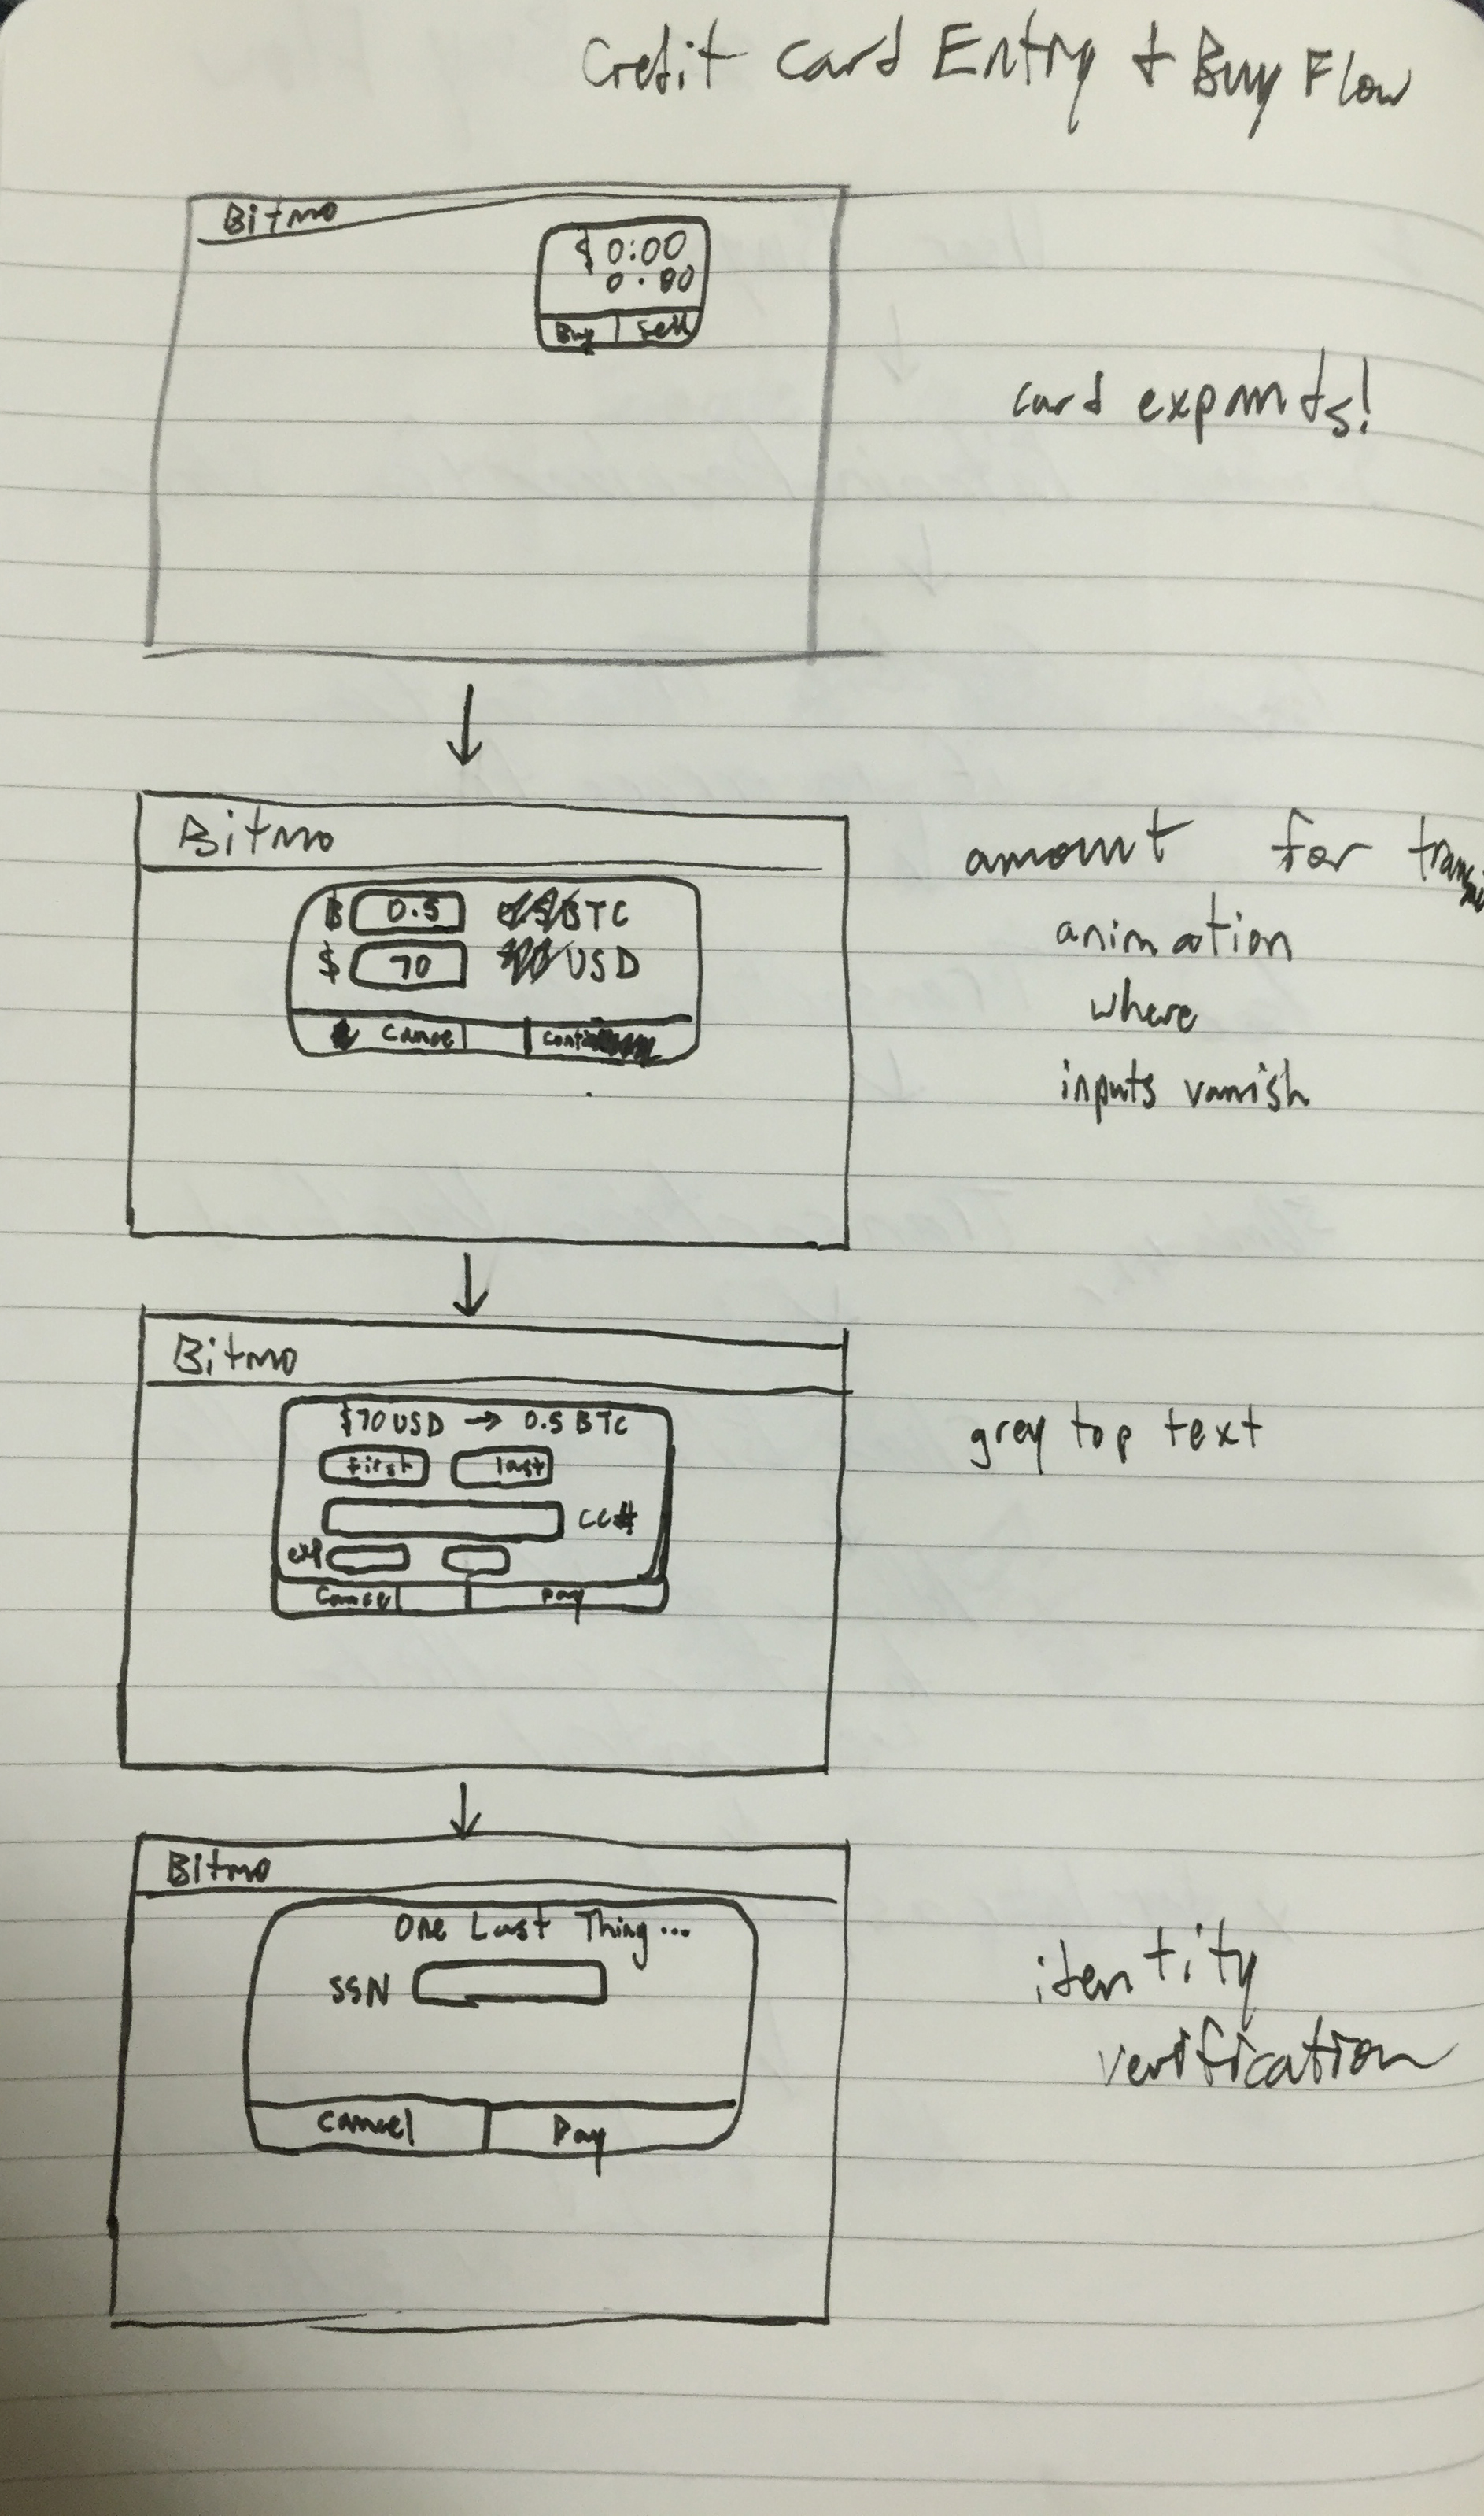 Credit Card Entry + Buy Flow
Bitmo
$ 0:00
0.00
Buy Sell
card expands!
Bitmo
0.5 BTC
$ 70 USD
Cancel
amount for
animation
where
inputs vanish
Bitmo
$70 USD → 0.5 BTC
first last
CC#
exp
Cancel Pay
grey top text
Bitmo
One Last Thing...
SSN
Cancel Pay
identity
verification